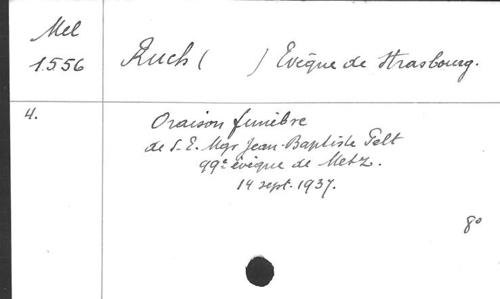 Mel
1.556
Ruch ( ) Evêque de Strasbourg.
4.
Oraison funèbre
de S. E. Mgr Jean-Baptiste Pelt
99e évêque de Metz.
14 sept. 1937.
8o